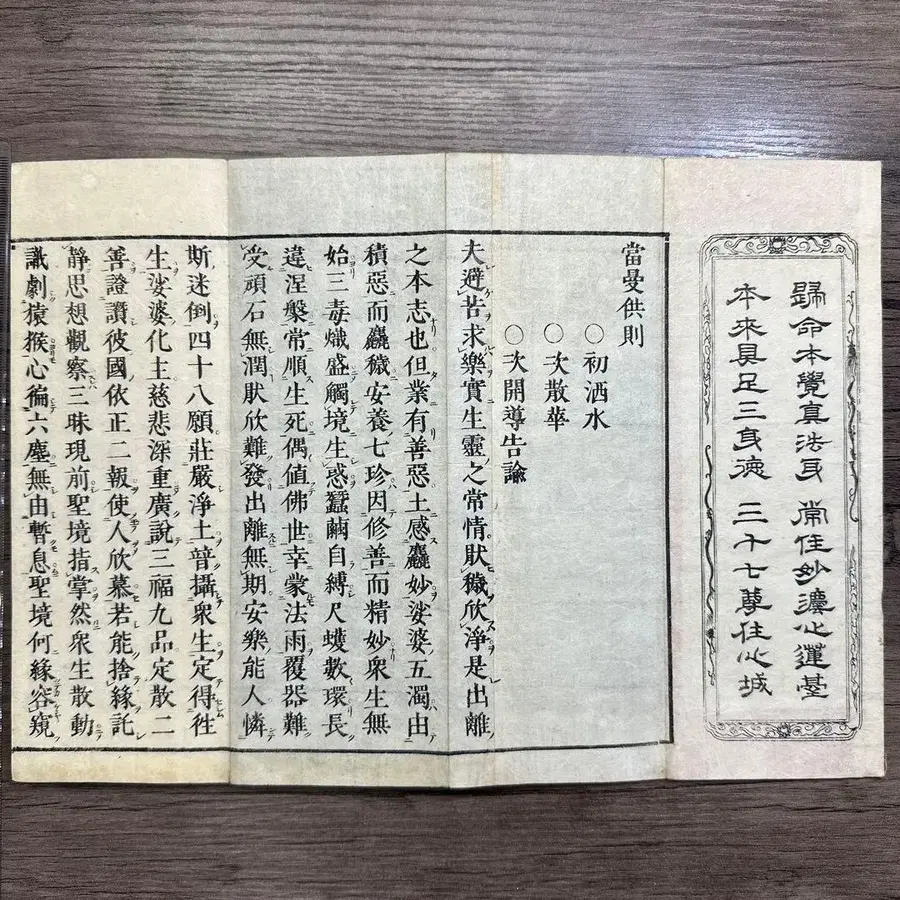 歸命本覺真法身　常住妙灋心蓮臺
本來具足三身德　三十七尊住心城
當曼供則
○初洒水
○次散華
○次開導告諭
夫避苦求樂實生靈之常情猒穢欣淨是出離
之本志也但業有善惡土感麤妙娑婆五濁由
積惡而麤穢安養七珍因修善而精妙衆生無
始三毒熾盛觸境生惑蠶繭自縛尺蠖數環長
違涅槃常順生死偶値佛世幸蒙法雨覆器難
受頑石無潤猒欣難發出離無期安樂能人憐
斯迷倒四十八願莊嚴淨土普攝衆生定得徃
生娑婆化主慈悲深重廣說三福九品定散二
善證讚彼國依正二報使人欣慕若能捨緣託
靜思想觀察三昧現前聖境指掌然衆生散動
識劇猿猴心徧六塵無由暫息聖境何緣容窺